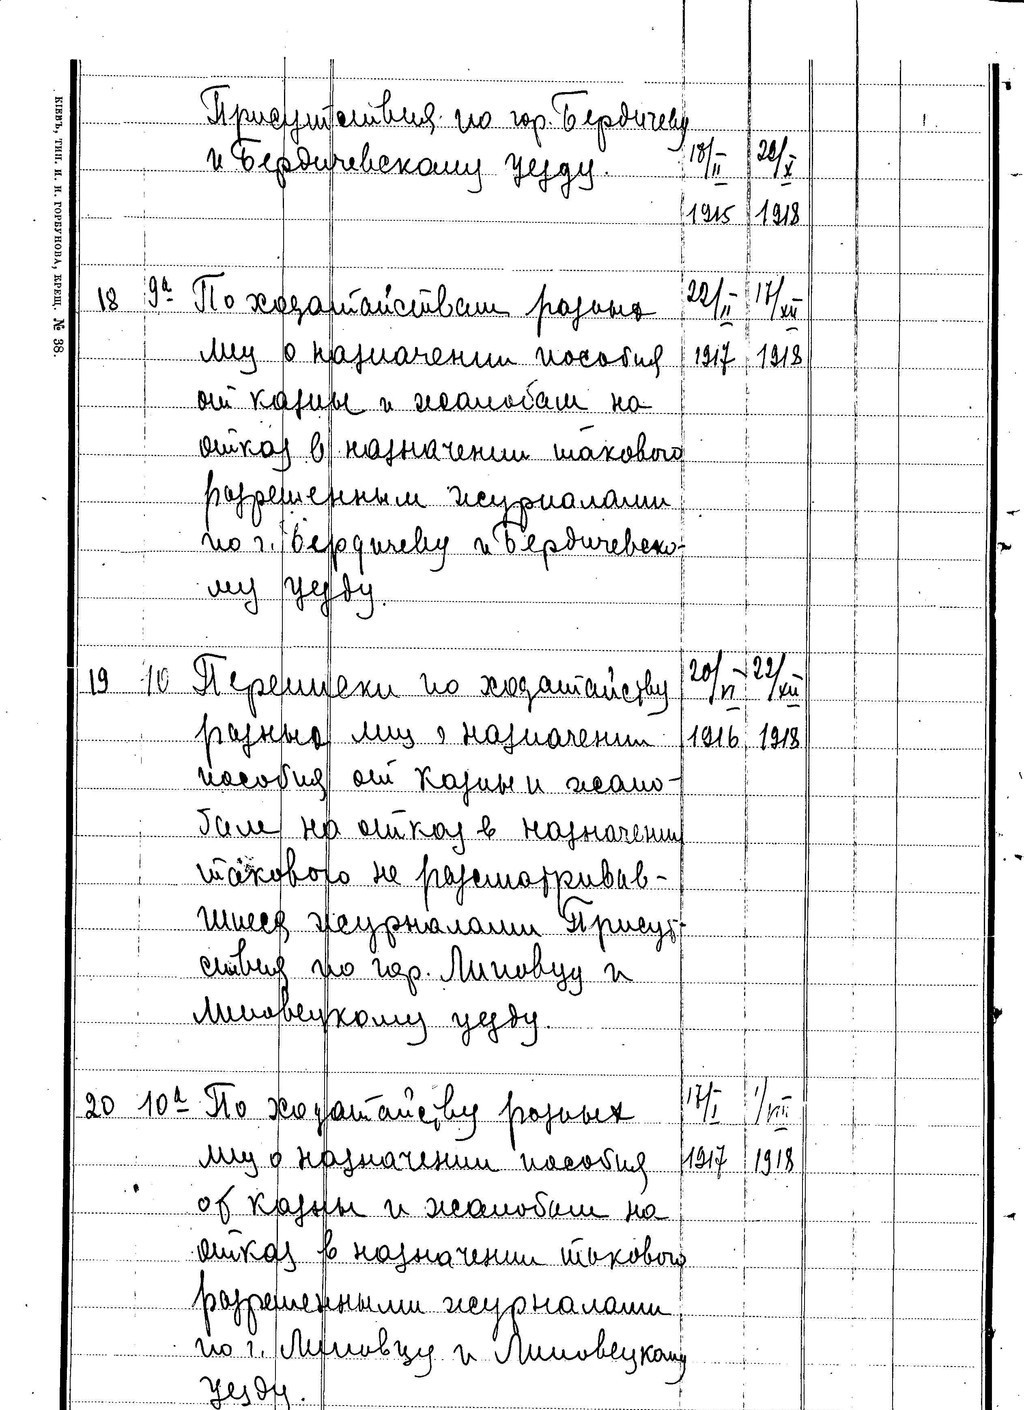 КІЕВЪ, ТИП. И. И. ГОРБУНОВА, КРЕЩ. № 38.
Присутствия по гор. Бердичеву
и Бердичевскому уезду. 18/II 22/X
1915 1918
18 9а По ходатайствам разных 22/II 17/XII
лиц о назначении пособия 1917 1918
от казны и жалобам на
отказ в назначении такового
разрешенным журналами
по г. Бердичеву и Бердичевско-
му уезду.
19 10 Переписки по ходатайству 20/VI 22/XII
разных лиц о назначении 1916 1918
пособия от казны и жало-
бам на отказ в назначении
такового не разсматривав-
шиеся журналами Присут-
ствия по гор. Липовцу и
Липовецкому уезду.
20 10а По ходатайству разных 17/I 1/VIII
лиц о назначении пособия 1917 1918
от казны и жалобам на
отказ в назначении такового
разрешенными журналами
по г. Липовцу и Липовецкому
уезду.